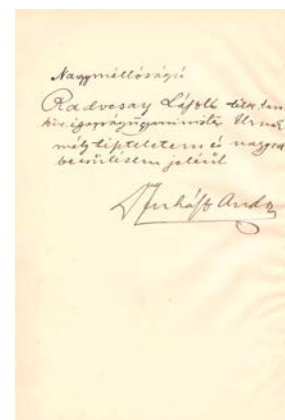 Nagyméltóságú
Radocsay László titk. tan.
kir. igazságügyminister Úrnak
mély tiszteletem és nagyra
becsülésem jeléül
Juhász Andor